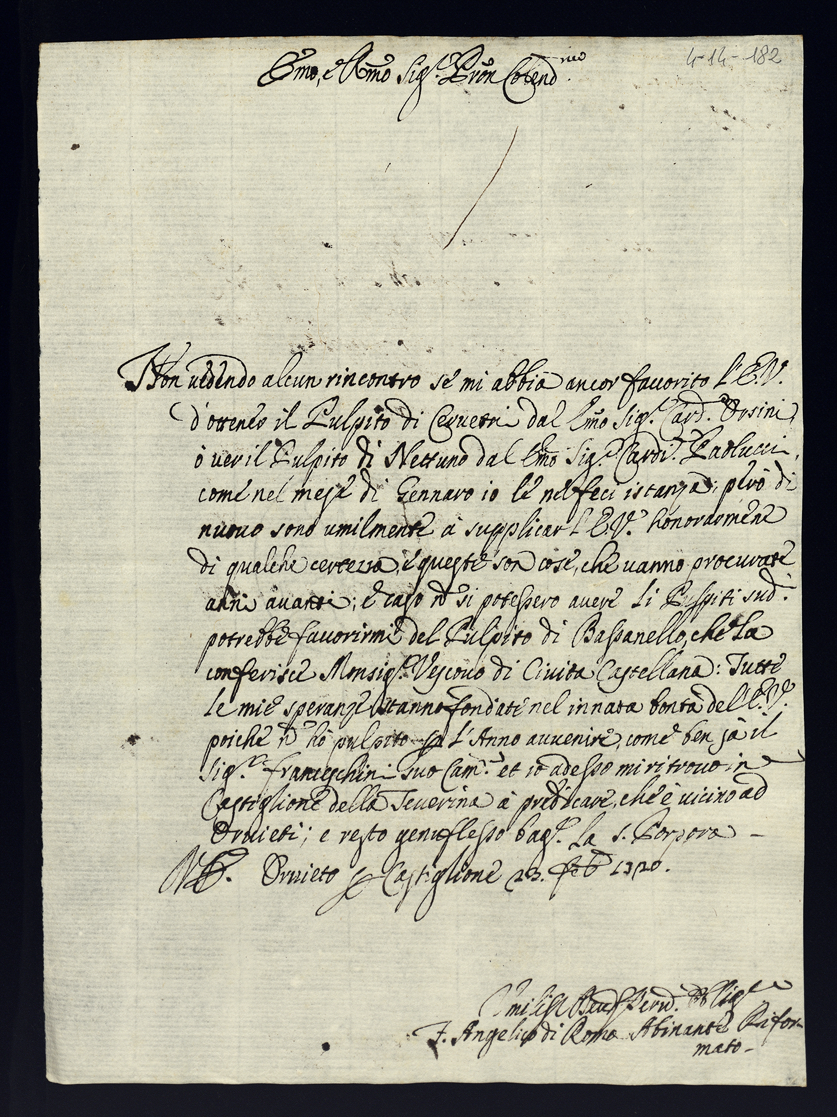 4-14-182
Emo, e Rmo Sig.r Pron Colend.mo
Non vedendo alcun rincontro se mi abbia ancor favorito l'E.V.
d'ottener il Pulpito di Cervetri dal Emo Sig.r Card. Orsini,
ò ver il Pulpito di Nettuno dal Emo Sig.r Card. Paolucci,
come nel mese di Gennaro io le ne feci istanza; però di
nuovo sono umilmente à supplicar l'E.V. honorarmene
di qualche certezza, e queste son cose, che vanno procurate
anni avanti; e caso n si potessero avere li Pulpiti sud.i
potrebbe favorirmi del Pulpito di Bassanello, che la
conferisce Monsig.r Vescovo di Civita Castellana: Tutte
le mie speranze stanno fondate nel innata bontà del E.V.
poiche n hò pulpito p l'Anno avvenire, come ben sà il
Sig.r Franceschini suo Cam.re et io adesso mi ritrovo in
Castiglione della Teverina à predicare, che è vicino ad
Orvieti; e resto genuflesso bag.o la S. Porpora -
Orvieto p Castiglione 23. Feb 1720.
Umiliss. Devotiss. Serv. Oblig.
F. Angelico di Roma Rifor-
mato -